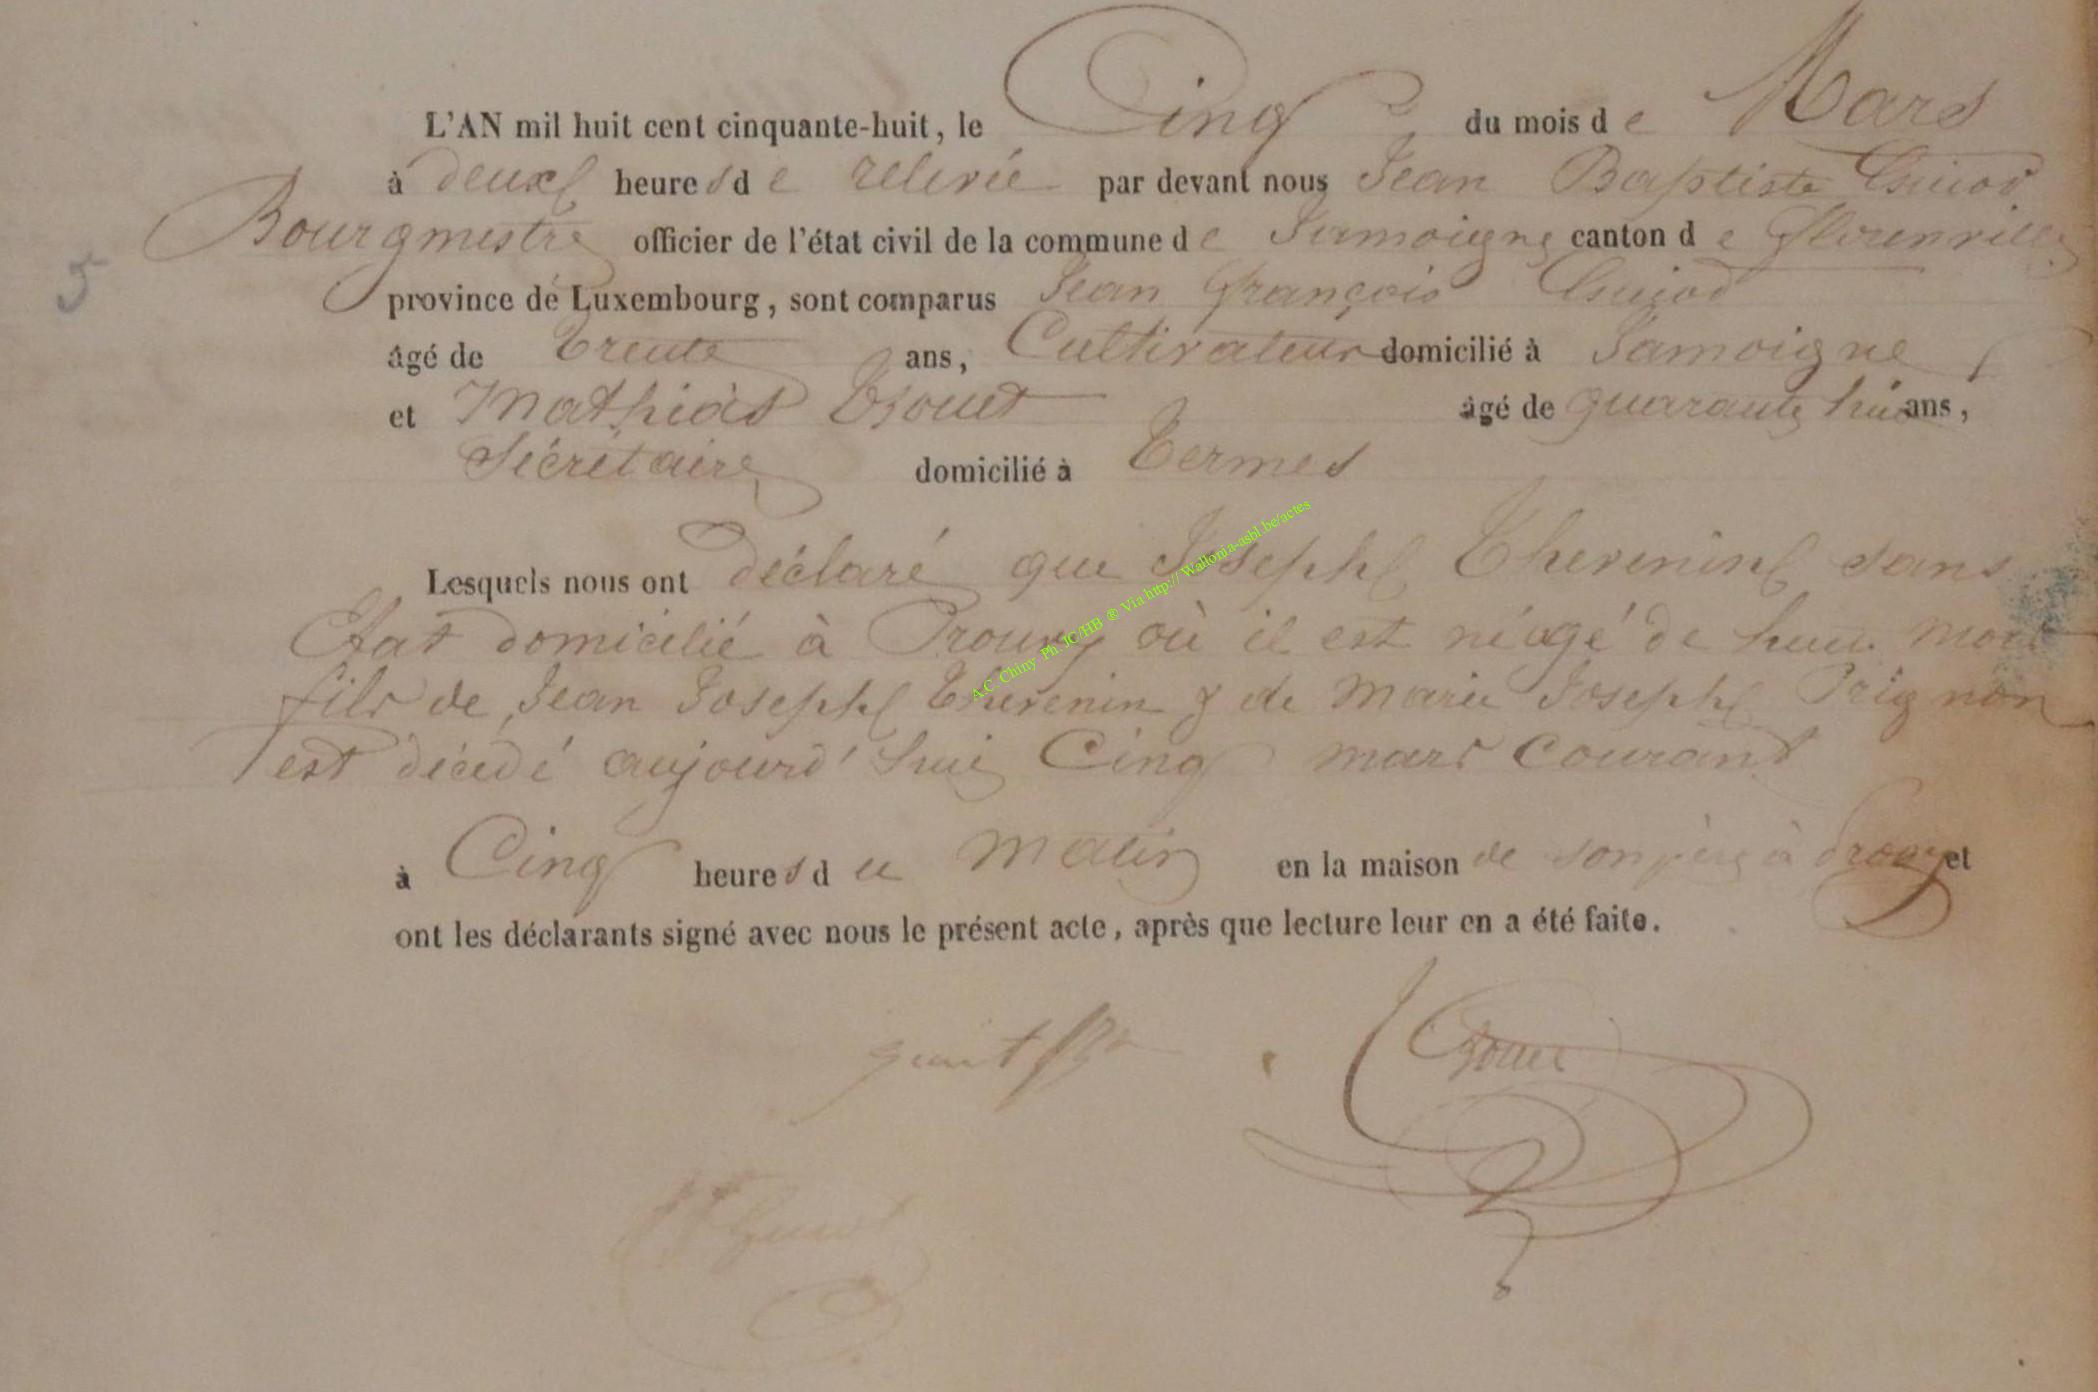 L'AN mil huit cent cinquante-huit, le Cinq du mois de Mars
à deux heures de relevée par devant nous Jean Baptiste Guiot
Bourgmestre officier de l'état civil de la commune de Jamoigne canton de Florenville
5
province de Luxembourg, sont comparus Jean François Guiot
âgé de Trente ans, Cultivateur domicilié à Jamoigne
et Mathias âgé de quarante huit ans,
Sécrétaire domicilié à Termes
Lesquels nous ont déclaré que Joseph Thevenin sans
Etat domicilié à Prouvy où il est né âgé de huit mois
fils de Jean Joseph Thevenin & de Marie Joseph Prignon
est décédé aujourd'hui Cinq mars Courant
à Cinq heures du Matin en la maison de son père à Prouvy et
ont les déclarants signé avec nous le présent acte, après que lecture leur en a été faite.
A.C. Chiny Ph. JC/HB ® Via http://Wallonia-asbl.be/actes